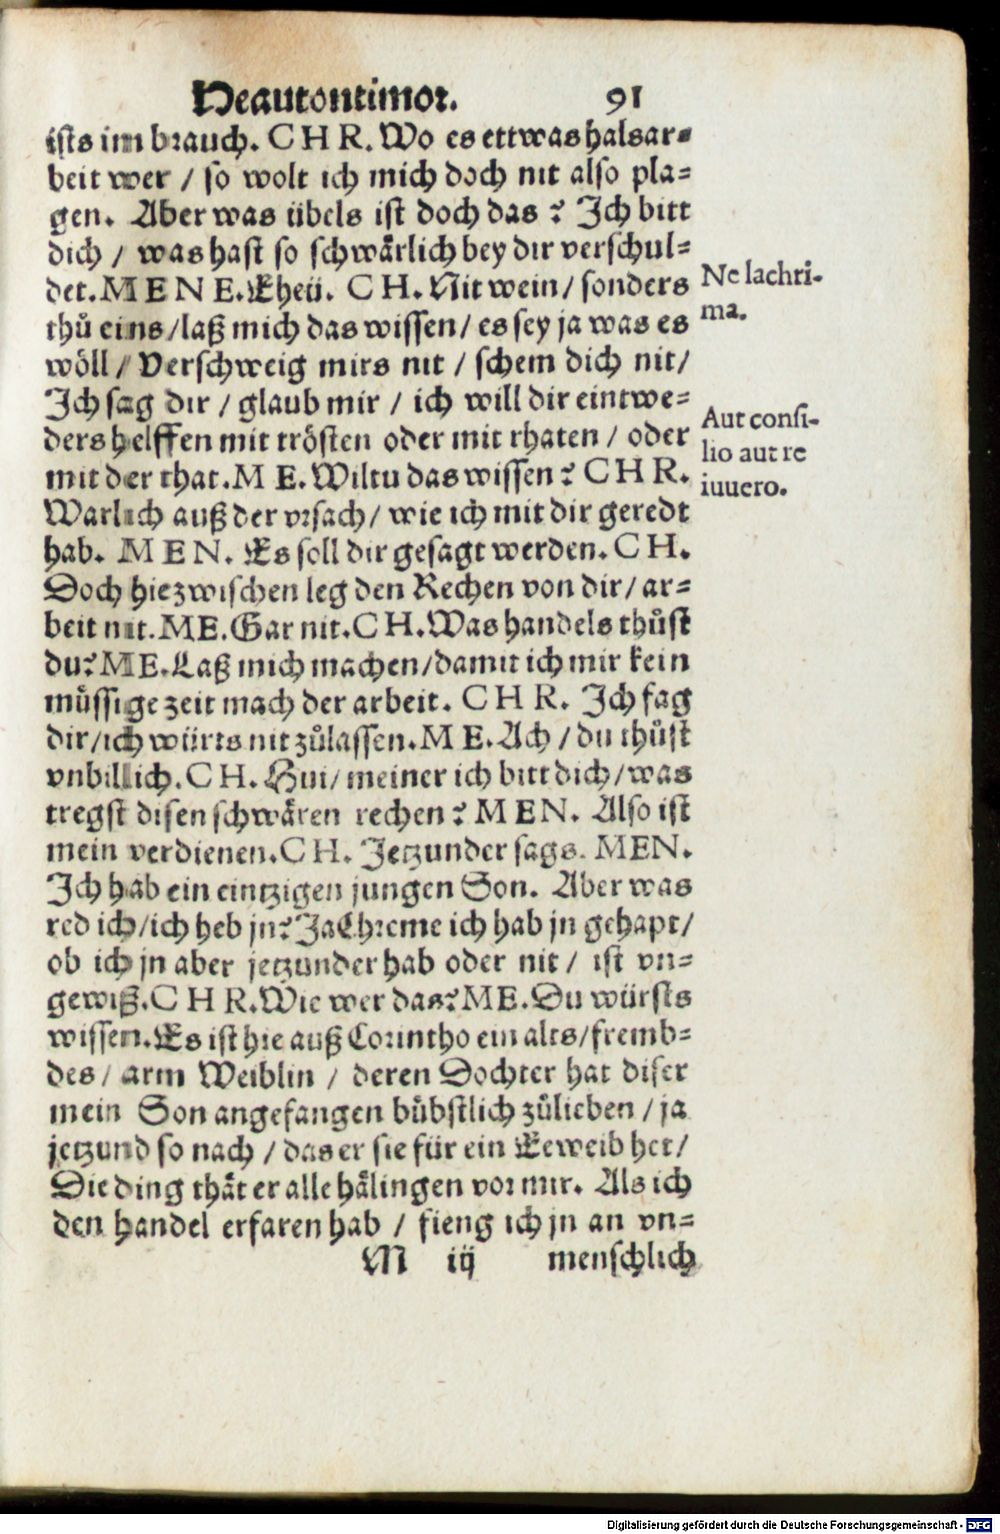 Heautontimor. 91
ists im brauch. CHR. Wo es ettwas halsar⸗
beit wer / so wolt ich mich doch nit also pla⸗
gen. Aber was übels ist doch das? Ich bitt
dich / was hast so schwärlich bey dir verschul⸗
det. MENE. Eheü. CH. Nit wein / sonders
Ne lachri-
thů eins / laß mich das wissen / es sey ja was es
ma.
wöll / Verschweig mirs nit / schem dich nit /
Ich sag dir / glaub mir / ich will dir eintwe⸗
ders helffen mit trösten oder mit rhaten / oder
Aut consi-
mit der that. ME. Wiltu das wissen? CHR.
lio aut re
iuuero.
Warlich auß der vrsach / wie ich mit dir geredt
hab. MEN. Es soll dir gesagt werden. CH.
Doch hiezwischen leg den Rechen von dir / ar⸗
beit nit. ME. Gar nit. CH. Was handels thůst
du? ME. Laß mich machen / damit ich mir kein
müssige zeit mach der arbeit. CHR. Ich sag
dir / ich würts nit zůlassen. ME. Ach / du thůst
vnbillich. CH. Hui / meiner ich bitt dich / was
tregst disen schwären rechen? MEN. Also ist
mein verdienen. CH. Jetzunder sags. MEN.
Ich hab ein eintzigen jungen Son. Aber was
red ich / ich heb jn? Ja Chreme ich hab jn gehapt /
ob ich jn aber jetzunder hab oder nit / ist vn⸗
gewiß. CHR. Wie wer das? ME. Du würsts
wissen. Es ist hie auß Corintho ein alts / fremb⸗
des / arm Weiblin / deren Dochter hat diser
mein Son angefangen bübstlich zůlieben / ja
jetzund so nach / das er sie für ein Eeweib het /
Die ding thät er alle hälingen vor mir. Als ich
den handel erfaren hab / fieng ich jn an vn⸗
M iij menschlich
Digitalisierung gefördert durch die Deutsche Forschungsgemeinschaft - DFG